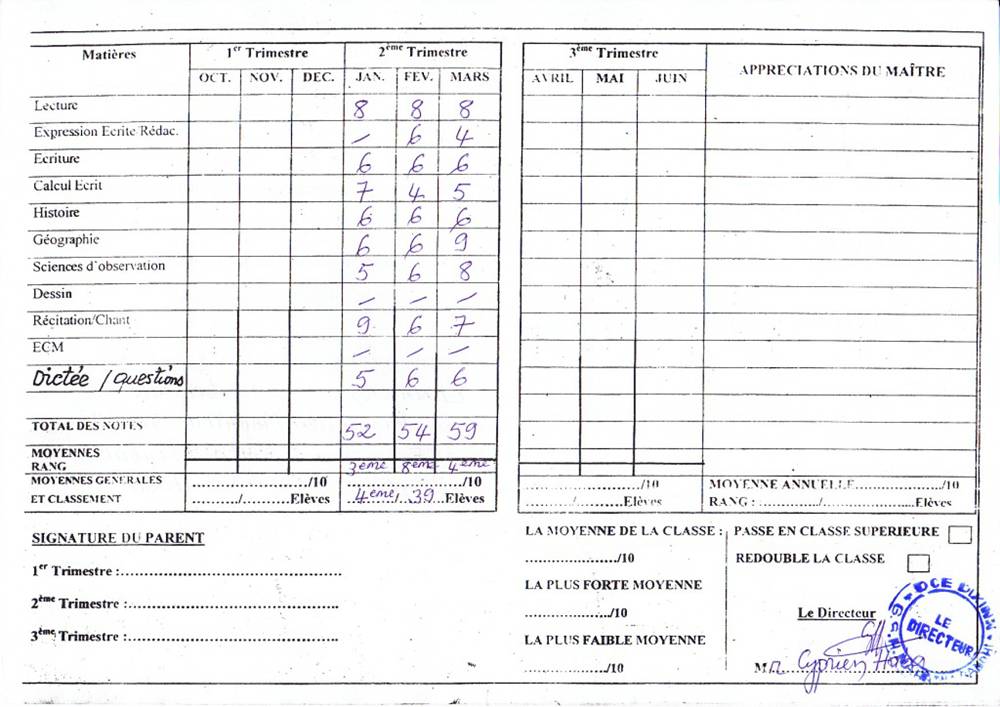 Matières 1er Trimestre 2ème Trimestre 3ème Trimestre APPRECIATIONS DU MAÎTRE
OCT. NOV. DEC. JAN. FEV. MARS AVRIL MAI JUIN
Lecture 8 8 8
Expression Ecrite Rédac. — 6 4
Ecriture 6 6 6
Calcul Ecrit 7 4 5
Histoire 6 6 6
Géographie 6 6 9
Sciences d'observation 5 6 8
Dessin — — —
Récitation/Chant 9 6 7
ECM — — —
Dictée / questions 5 6 6
TOTAL DES NOTES 52 54 59
MOYENNES
RANG 3ème 8ème 4ème
MOYENNES GENERALES ..................../10 ..................../10 ..................../10 MOYENNE ANNUELLE..................../10
ET CLASSEMENT ........./.........Elèves 4ème/ 39 Elèves ........./.........Elèves RANG : ............/....................Elèves
SIGNATURE DU PARENT
1er Trimestre :........................................
2ème Trimestre :........................................
3ème Trimestre :........................................
LA MOYENNE DE LA CLASSE :
..................../10
LA PLUS FORTE MOYENNE
..................../10
LA PLUS FAIBLE MOYENNE
..................../10
PASSE EN CLASSE SUPERIEURE
REDOUBLE LA CLASSE
Le Directeur
Cyprien
DCE DIXINN
LE
DIRECTEUR